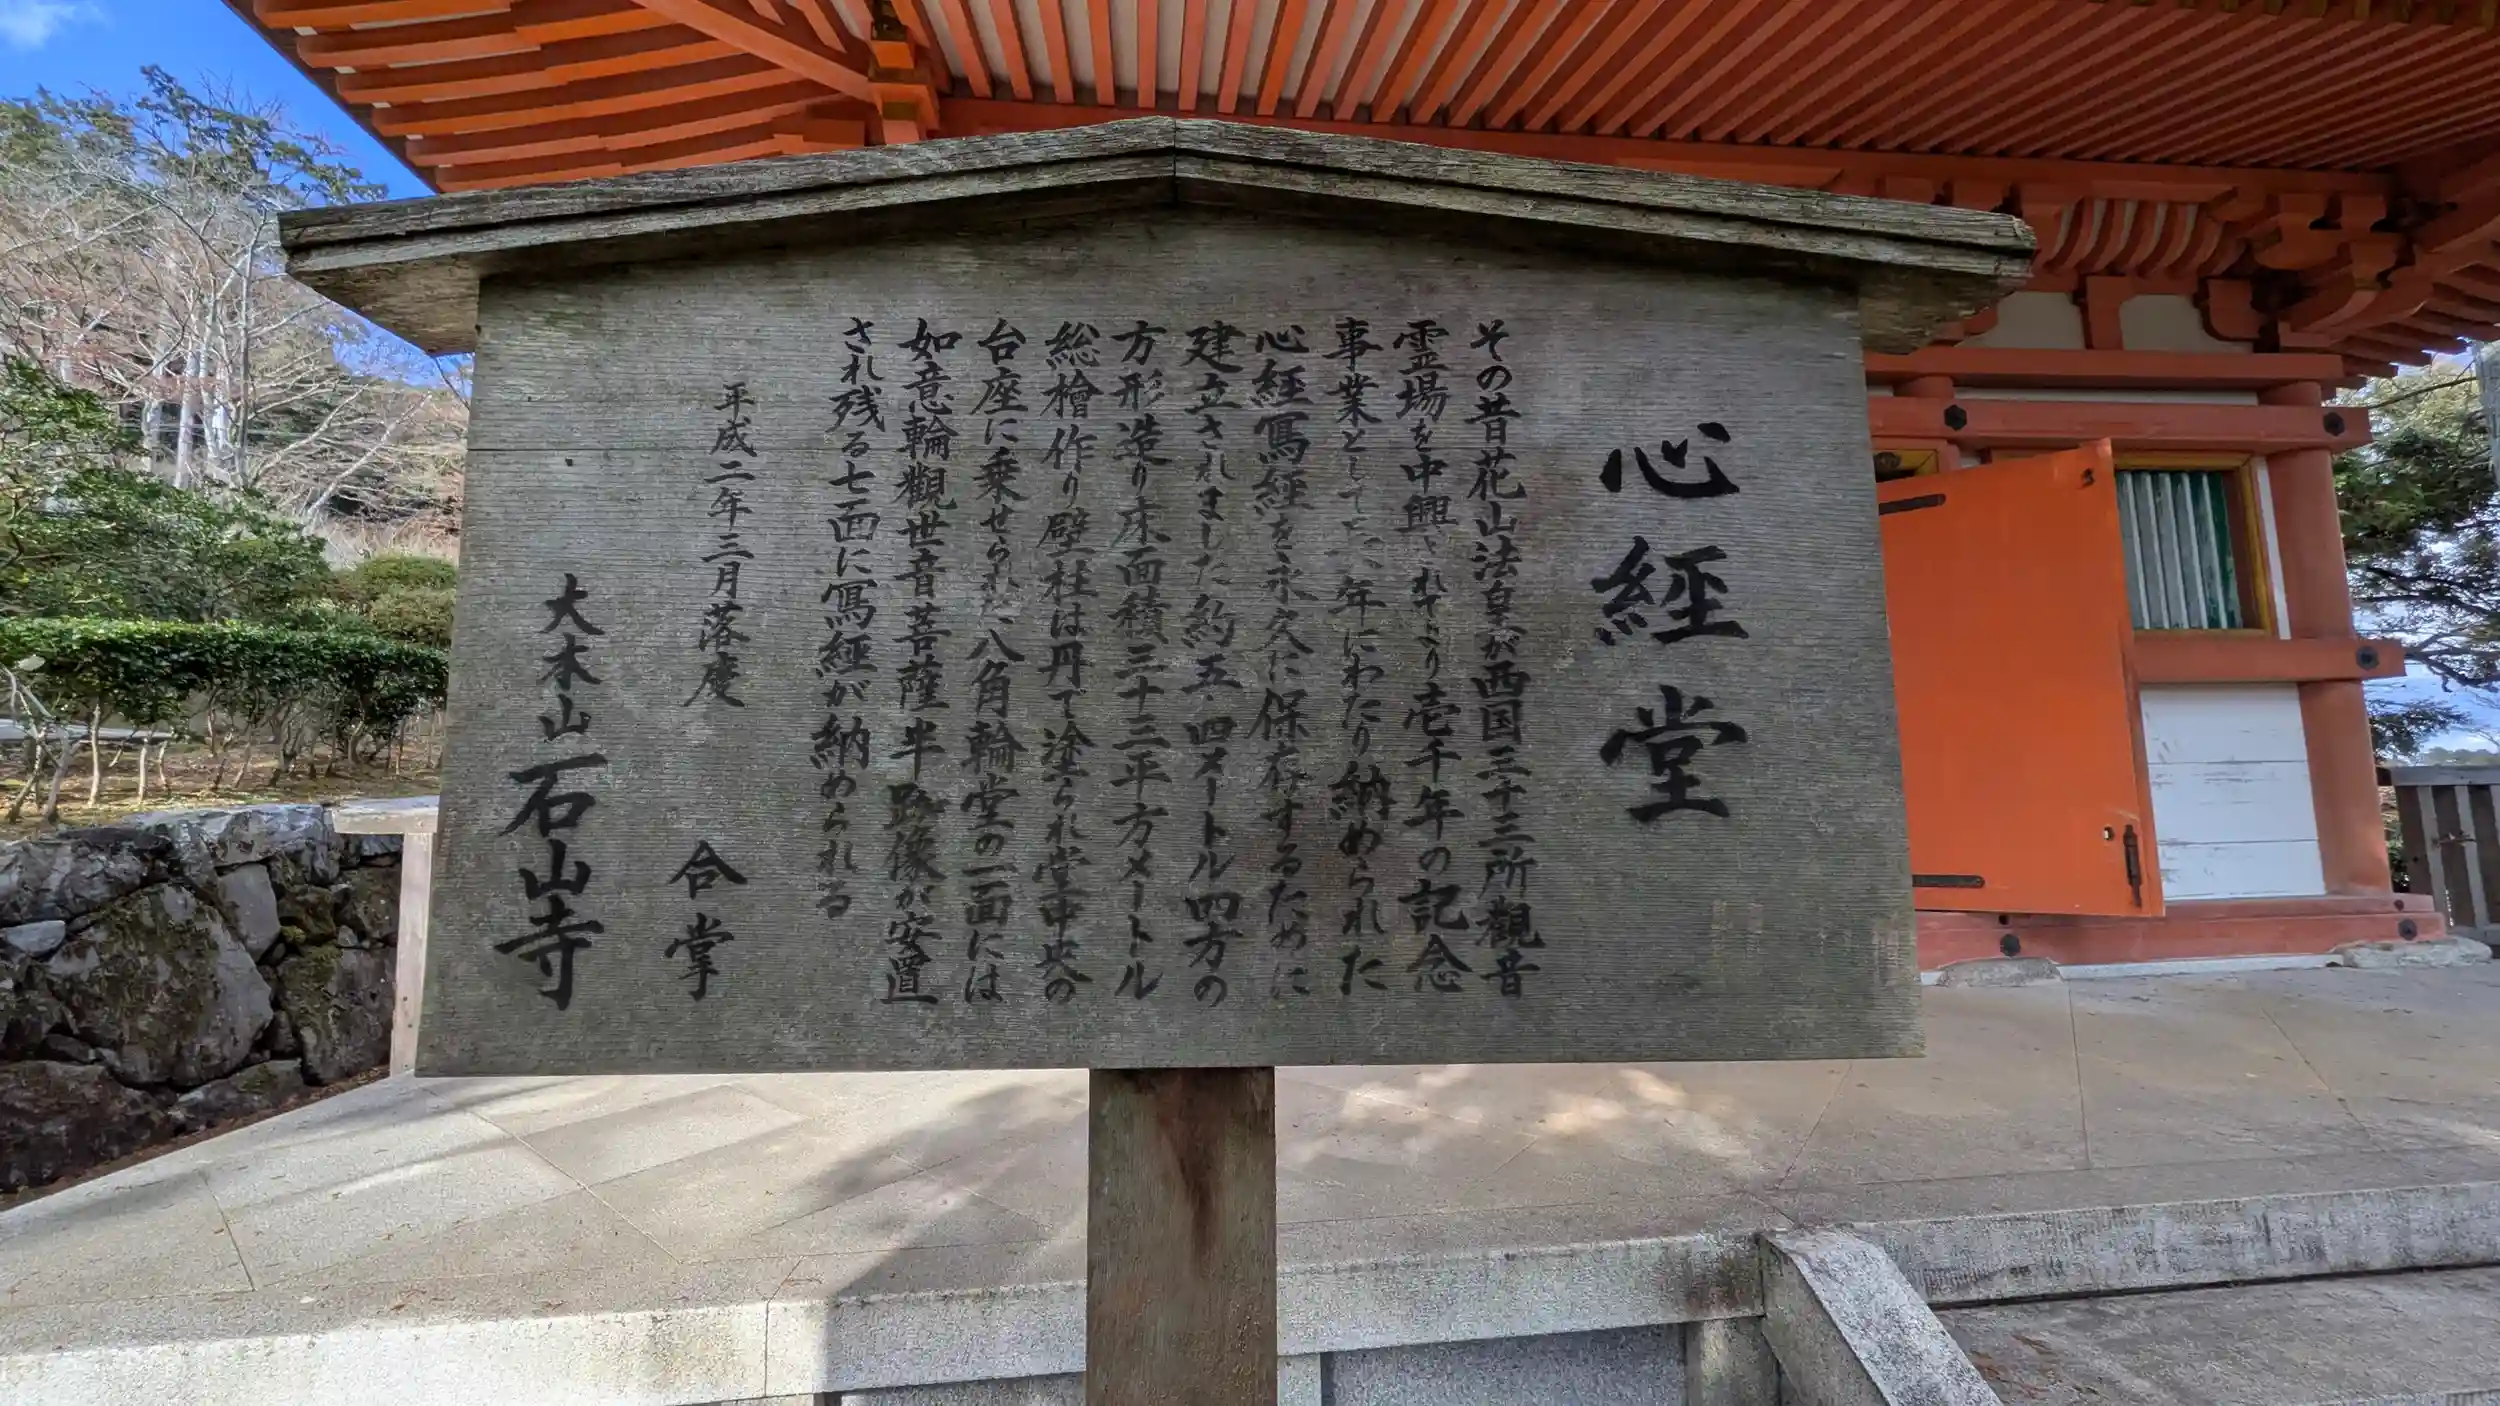 心經堂
その昔花山法皇が西国三十三所觀音
霊場を中興されてより壱千年の記念
事業として 年にわたり納められた
心経寫経を永久に保存するために
建立されました約五・四メートル四方の
方形造り床面積三十三平方メートル
総檜作り壁柱は丹で塗られ堂中央の
台座に乗せられた八角輪堂の一面には
如意輪觀世音菩薩半跏像が安置
され残る七面に寫經が納められる
平成二年三月落慶
合掌
大本山石山寺